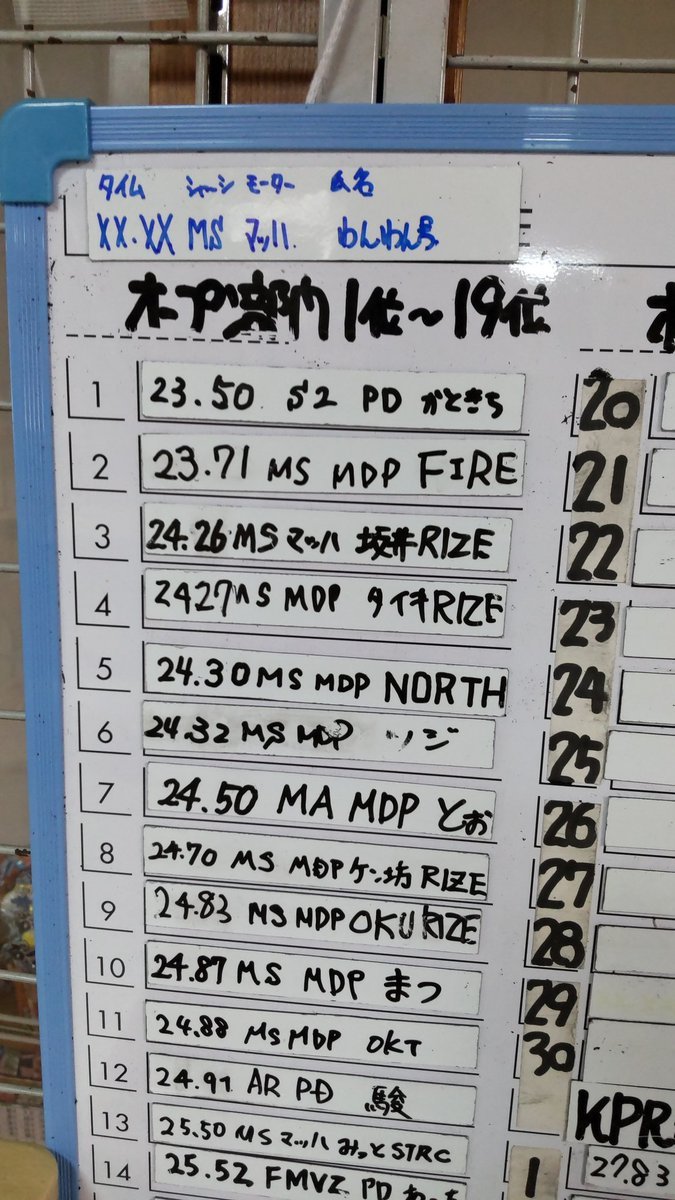 タイム シャーシ モーター 氏名
XX.XX MS マッハ わんわん号
オープン部内 1位～19位
1 23.50 S2 PD かときち
2 23.71 MS MDP FIRE
3 24.26 MS マッハ 坂井RIZE
4 2427 MS MDP タイキRIZE
5 24.30 MS MDP NORTH
6 24.32 MS MDP ソジ
7 24.50 MA MDP とお
8 24.70 MS MDP ケン坊 RIZE
9 24.83 MS MDP OKU RIZE
10 24.87 MS MDP まつ
11 24.88 MS MDP OKT
12 24.91 AR PD 駿
13 25.50 MS マッハ みっと STRC
14 25.52 FMVZ PD
20
21
22
23
24
25
26
27
28
29
30
KPR
1 27.83